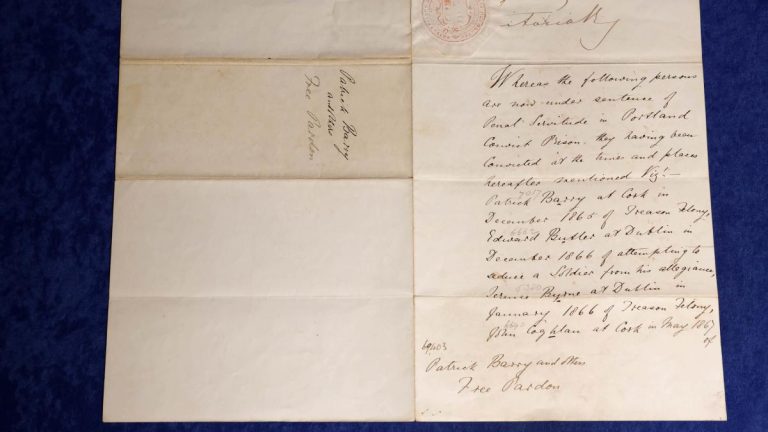 Patrick Barry
and others
Free Pardon
Victoria R
Whereas the following persons
are now under sentence of
Penal Servitude in Portland
Convict Prison. they having been
Convicted at the times and places
hereafter mentioned Viz:—
Patrick Barry at Cork in
December 1865 of Treason Felony,
Edward Butler at Dublin in
December 1866 of attempting to
seduce a Soldier from his allegiance,
Terence Byrne at Dublin in
January 1866 of Treason Felony,
John Coghlan at Cork in May 1867
of
Patrick Barry and others
Free Pardon